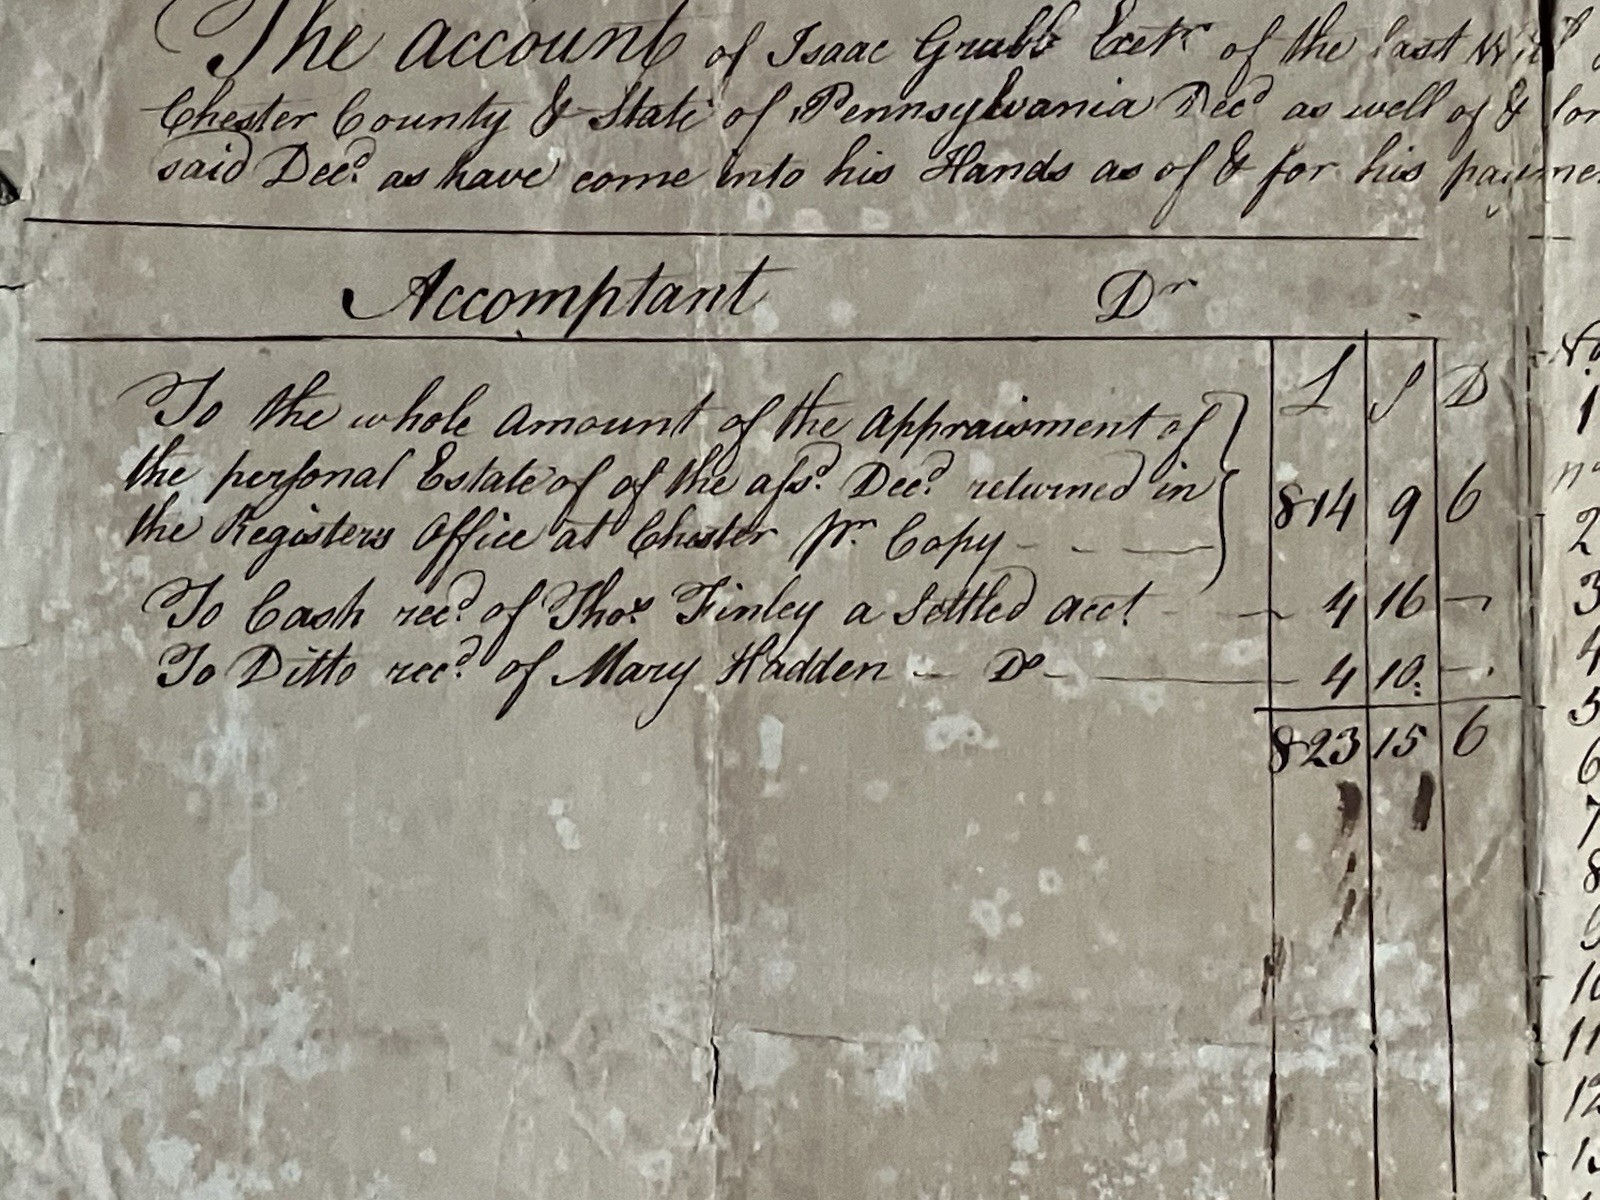 The account of Isaac Grubb Exetr of the last Will
Chester County & State of Pennsylvania Decd as well of & for
said Decd. as have come into his Hands as of & for his payme
Accomptant Dr
L S D
To the whole amount of the appraisment of
the personal Estate of of the afsd. Decd. returned in
the Registers Office at Chester pr. Copy - - — 814 9 6
To Cash recd. of Thos. Finley a Settled acct. — 4 16 —
To Ditto recd. of Mary Hadden — Do — 4 10: —
823 15 6
No
1
2
3
4
5
6
7
8
9
10
11
12